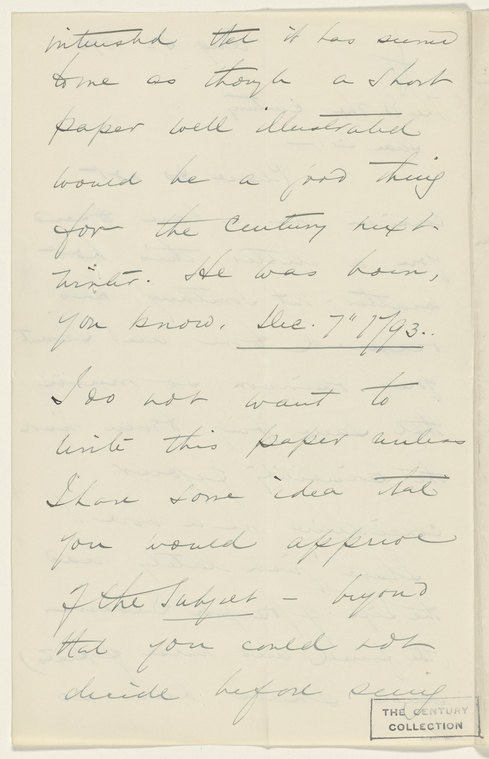 interested that it has seemed
to me as though a short
paper well illustrated
would be a good thing
for the Century next
winter. He was born,
you know, Dec. 7" 1793..
I do not want to
write this paper unless
I have some idea that
you would approve
of the Subject – beyond
that you could not
decide before seeing
THE CENTURY
COLLECTION